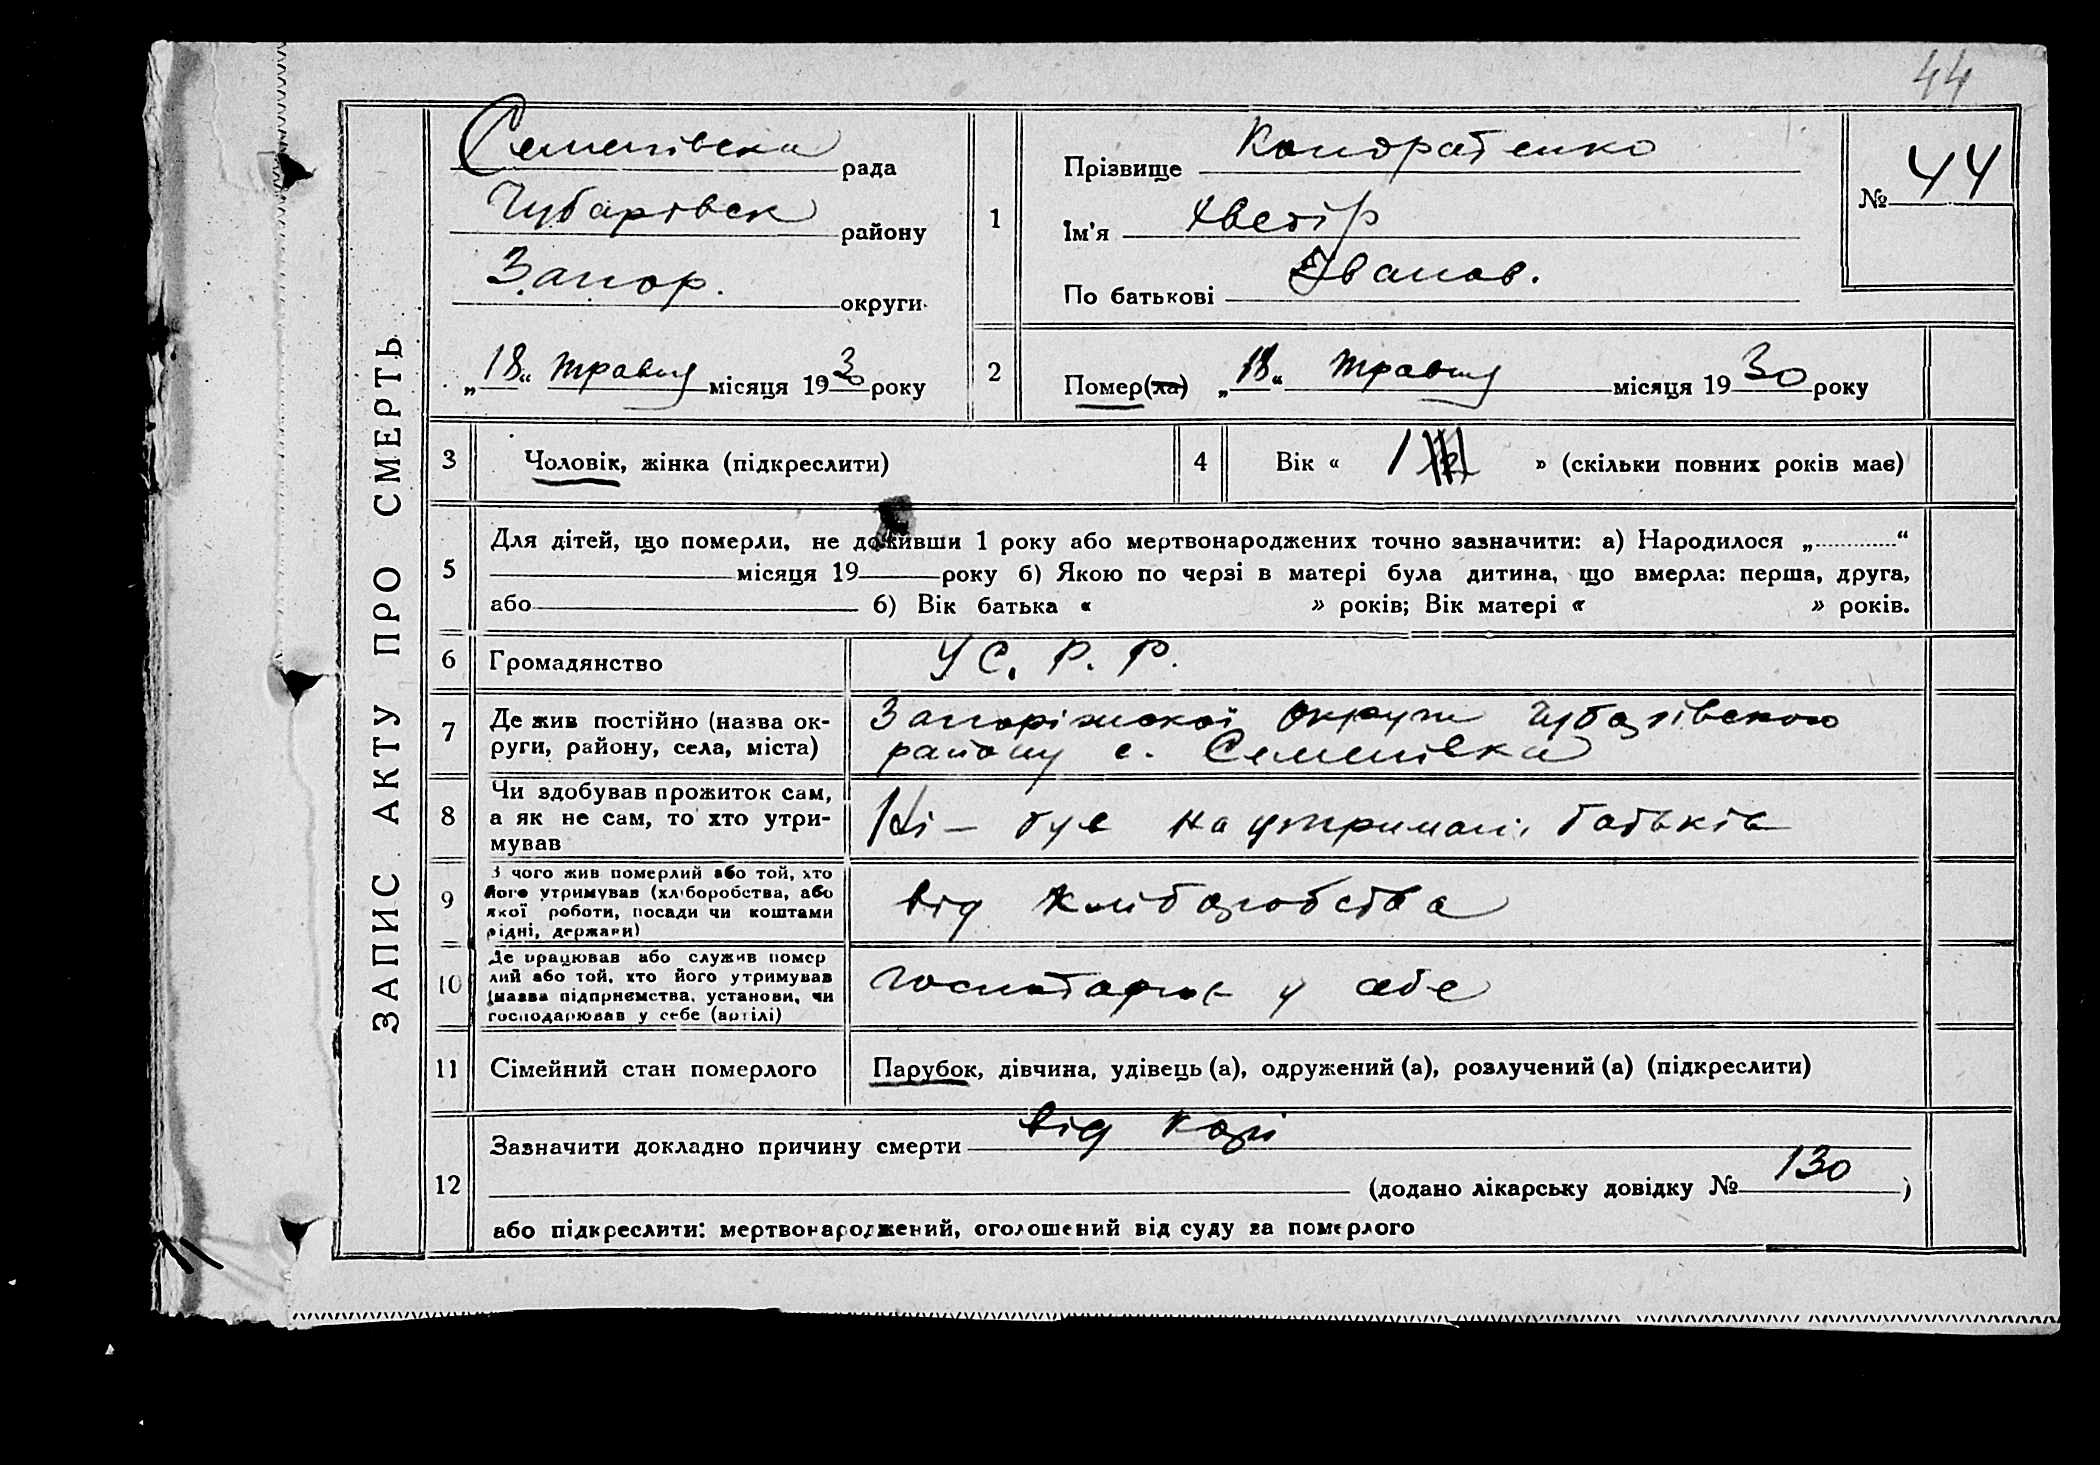 44
ЗАПИС АКТУ ПРО СМЕРТЬ
Семенівська рада
Чубарівськ району
Запор. округи
„18“ травня місяця 1930 року
1
Прізвище Кондратенко
Ім'я
По батькові Іванов.
№ 44
2
Помер(ла) „18“ травня місяця 1930 року
3
Чоловік, жінка (підкреслити)
4
Вік « 1 » (скільки повних років має)
5
Для дітей, що померли, не доживши 1 року або мертвонароджених точно зазначити: а) Народилося „............“
місяця 19 року б) Якою по черзі в матері була дитина, що вмерла: перша, друга,
або б) Вік батька « » років; Вік матері « » років.
6
Громадянство
У С. Р. Р.
7
Де жив постійно (назва ок-
руги, району, села, міста)
Запоріжської округи Чубарівського
району с. Семенівка
8
Чи здобував прожиток сам,
а як не сам, то хто утри-
мував
Ні — був на утримані батьків
9
З чого жив померлий або той, хто
його утримував (хліборобства, або
якої роботи, посади чи коштами
рідні, держави)
від хліборобства
10
Де працював або служив помер
лий або той, хто його утримував
(назва підприємства, установи, чи
господарював у себе (артілі)
у себе
11
Сімейний стан померлого
Парубок, дівчина, удівець (а), одружений (а), розлучений (а) (підкреслити)
12
Зазначити докладно причину смерти від корі
(додано лікарську довідку № 130 )
або підкреслити: мертвонароджений, оголошений від суду за померлого